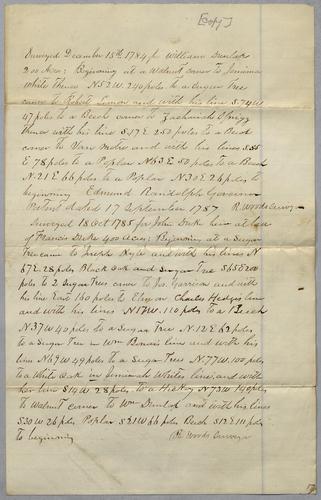 [copy]
Surveyed December 15th 1784 for William Dunlap
200 Acres: Beginning at a Walnut corner to Jemima
White thence N 52 W 240 poles to a Sugar Tree
corner to Robert Lemon and with his line S 74 W
47 poles to a Beech corner to Zachariah Sprigg
thence with his line S 17 E 250 poles to a Beech
corner to Van Metre and with his lines S 85
E 78 poles to a Poplar N 63 E 50 poles to a Beech
N. 21 E 66 poles to a Poplar N 30 E 26 poles to
beginning Edmund Randolph Governor
Patent dated 17 September 1787 R. Woods Surveyor
Surveyed 18 Oct 1785 for John Duke heir at law
of Francis Duke 400 Acres: Beginning at a Sugar
Tree corner to Joseph and with his lines N
67 E. 28 poles Black Oak and Sugar Tree S 65 E 200
poles to 2 Sugar Trees corner to Jos. Garrison and with
his line East 160 poles to Elm on Charles Hedges line
and with his lines N 17 W. 110 poles to a Beech
N 37 W 40 poles to a Sugar Tree N. 12 E 62 poles
to a Sugar Tree in Wm lines and with his
lines N 69 W 49 poles to a Sugar Trees N 77 W. 100 poles
to a White Oak in Jemimah Whites line and with
her line S 14 W 28 poles to a Hickory N 73 W 140 poles
to Walnut corner to Wm Dunlap and with his lines
S 30 W 26 poles Poplar S 21 W 66 poles Beech S 12 E 111 poles
to beginning R. Woods Surveyor